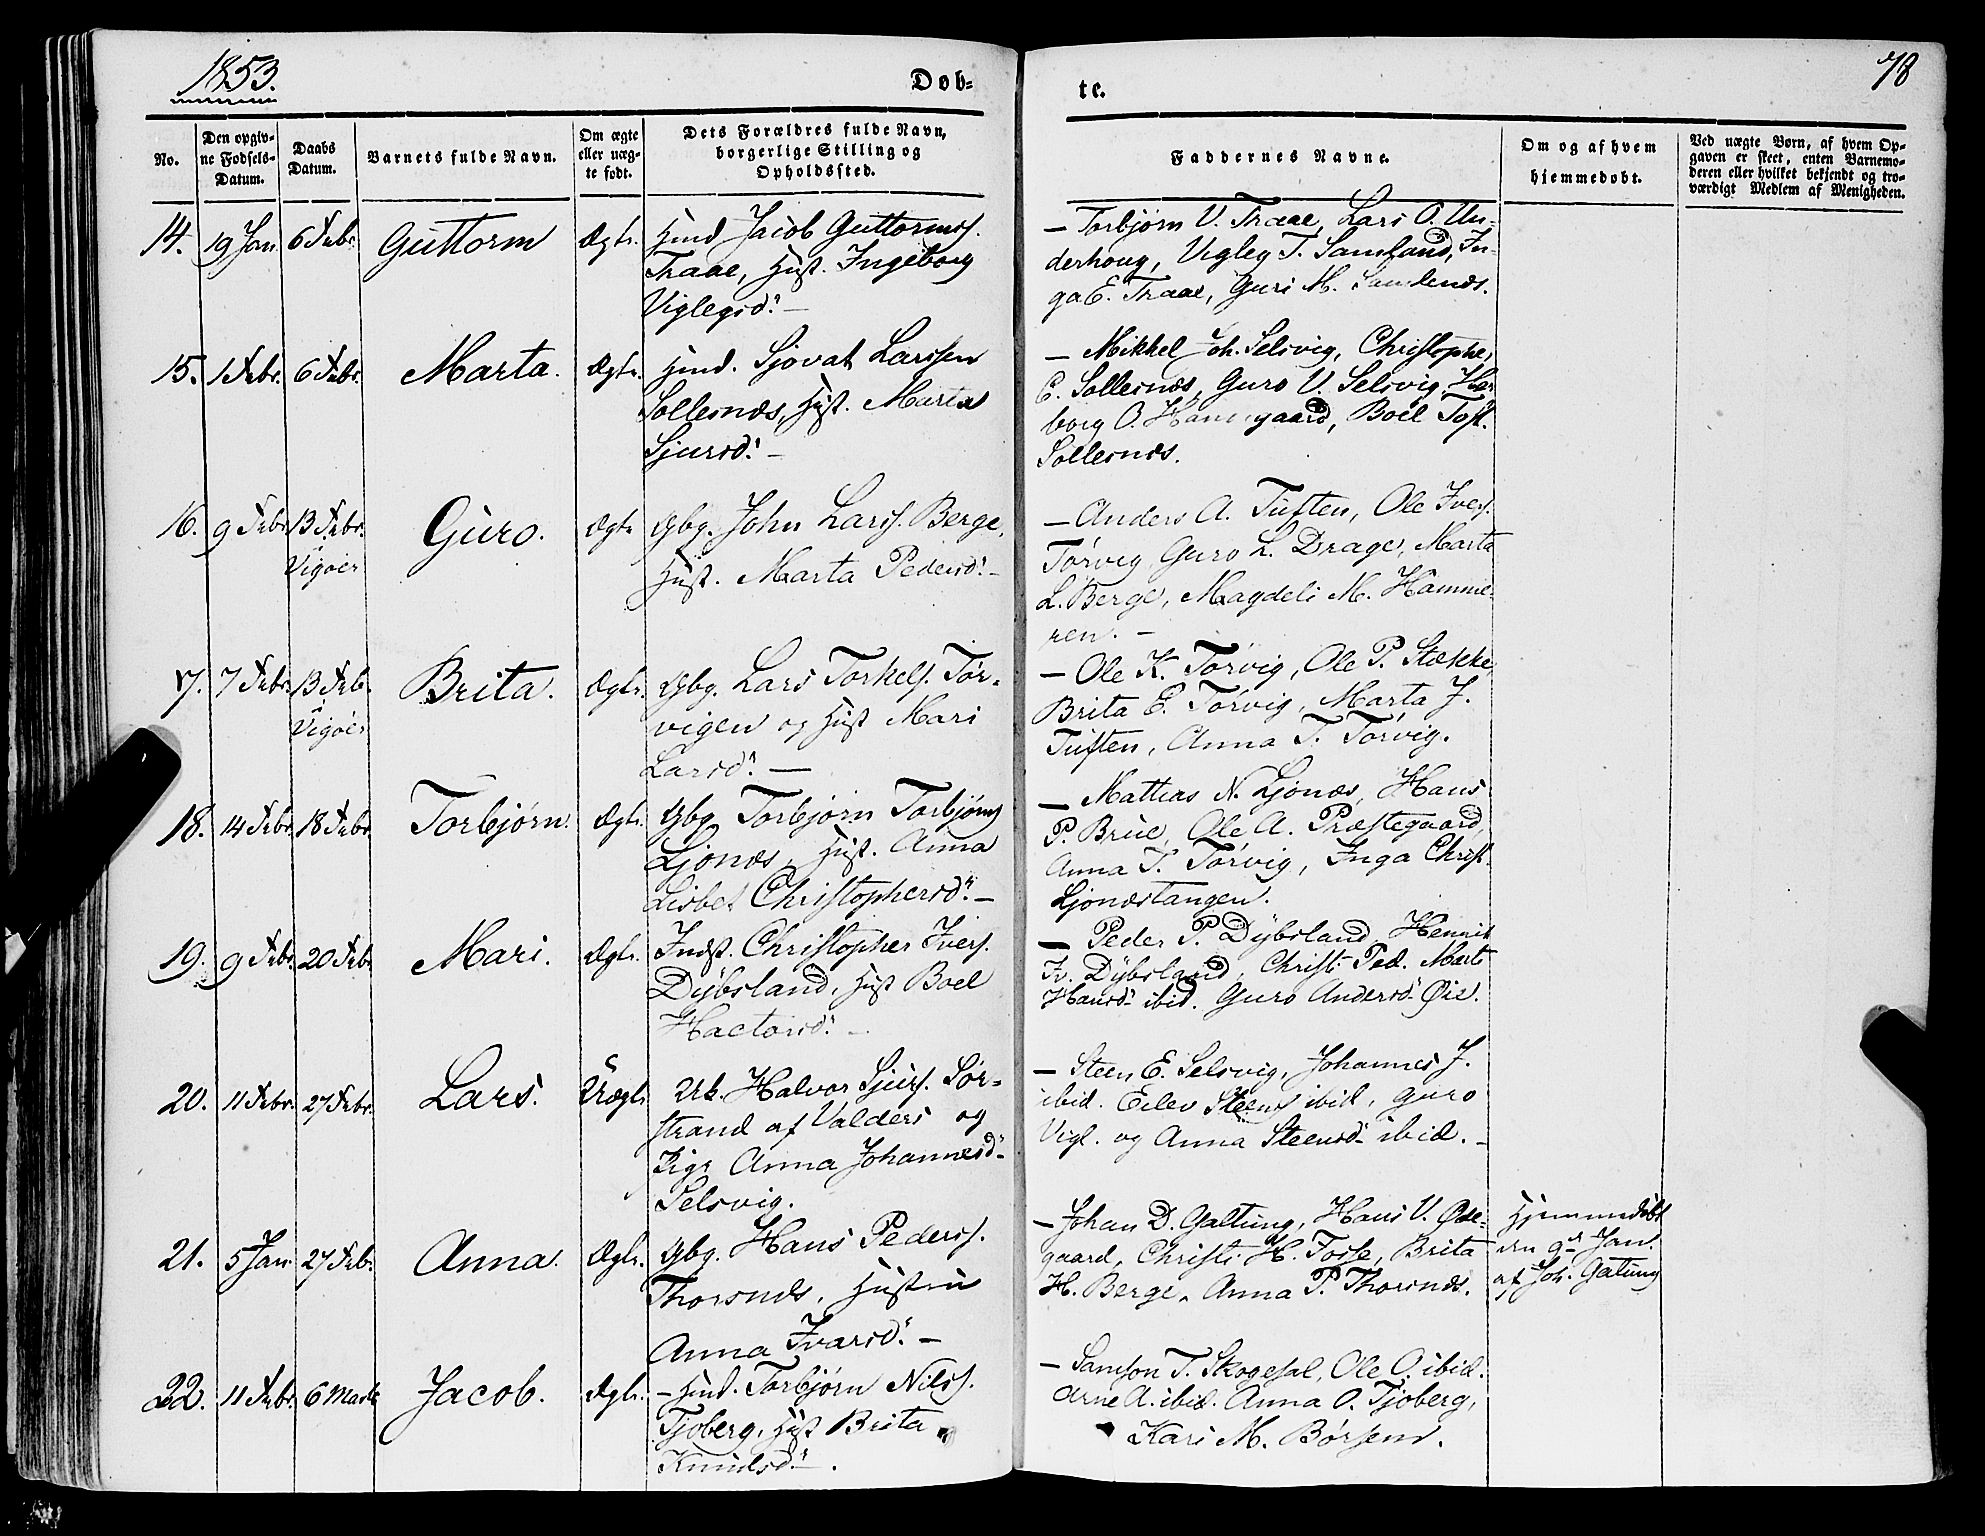 1853.
Døb-
te.
78
No.
Den opgiv-
ne Fødsels-
Datum.
Daabs
Datum.
Barnets fulde Navn.
Om ægte
eller uæg-
te født.
Dets Forældres fulde Navn,
borgerlige Stilling og
Opholdssted.
Faddernes Navne.
Om og af hvem
hjemmedøbt.
Ved uægte Børn, af hvem Op-
gaven er skeet, enten Barnemo-
deren eller hvilket bekjendt og tro-
værdigt Medlem af Menigheden.
14. 19 Jan 6 Febr. Guttorm Ægte. Hmd Jacob Guttorms.
Traae, Hust. Ingeborg
Viglegsd: —
— Torbjørn V. Traae, Lars O. Un-
derhoug, Vigleg T. Samland, In-
ga E. Traae, Guri M. Samlenæs.
15. 1 Febr. 6 Febr. Marta. Ægte. Hmd. Sjovat Larssen
Sollesnæs, Hust. Marta
Sjursd: —
— Mikkel Joh. Selsvig, Christophe,
E. Sollesnæs, Guro V. Selsvig, Her
borg O. gaard, Boel Tost.
Sollesnæs.
16. 9 Febr 13 Febr.
Vigøer
Guro. Ægte Gbg. John Lars. Berge,
Hust. Marta Pedersd: —
— Anders A. Tuften, Ole Ivers.
Tørvig, Guro L. Drage, Marta
L. Berge, Magdeli M. Hamme-
ren. —
17. 7 Febr. 13 Feb.
Vigøer
Brita. Ægte. Gbg. Lars Torkels. Tør-
vigen og Hust Mari
Larsd: —
— Ole K. Tørvig, Ole P. Stække,
Brita E. Tørvig, Marta J.
Tuften, Anna T. Tørvig.
18. 14 Febr. 18 Febr. Torbjørn. Ægte. Gbg. Torbjørn Torbjørns
Ljonæs, Hust. Anna
Lisbet Christophersd: —
— Mathias N. Ljonæs, Hans
P. Brue, Ole A. Præstegaard,
Anna T. Tørvig, Inga Christ.
Ljonæstangen.
19. 9 Febr. 20 Febr Mari. Ægte. Indst. Christopher Ivers.
Dybsland, Hust Boel
Hactorsd: —
— Peder P. Dybsland, Henrik
Iv. Dybsland, Christ. Ped. Marte
Hansd: ibid. Guro Andersd: Øie.
20. 11 Febr. 27 Febr. Lars. Uægte. Uk. Halvor Sjurs. Sør-
strand af Valders og
Pige Anna Johannesd:
Selsvig.
— Steen E. Selsvig, Johannes J.
ibid. Eilev Steens ibid, Guro
Vigl. og Anna Steensd: ibid. —
21. 5 Jan 27 Feb. Anna. Ægte. Gbg. Hans Peders.
Thorsnæs, Hustru
Anna Ivarsd: —
— Johan D. Galtung, Hans V. Øde-
gaard, Christi H. Tosse, Brita
H. Berge, Anna P. Thorsnæs.
Hjemmedøbt
den 9de Jan.
af Joh. Galtung
22. 11 Febr. 6 Marts Jacob. Ægte. — Hmd. Torbjørn Nils.
Tjoberg, Hust Brita
Knudsd: — .
— Samson T. Skogesal, Ole O. ibid.
Arne A. ibid. Anna O. Tjoberg,
Kari M. Børsem.